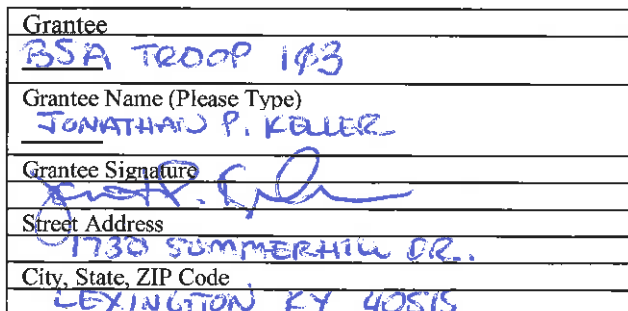 Grantee
BSA TROOP 103
Grantee Name (Please Type)
JONATHAN P. KELLER
Grantee Signature
Street Address
1730 SUMMERHILL DR.
City, State, ZIP Code
LEXINGTON KY 40515